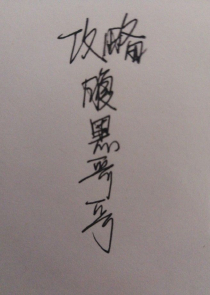 攻略
腹黑哥哥